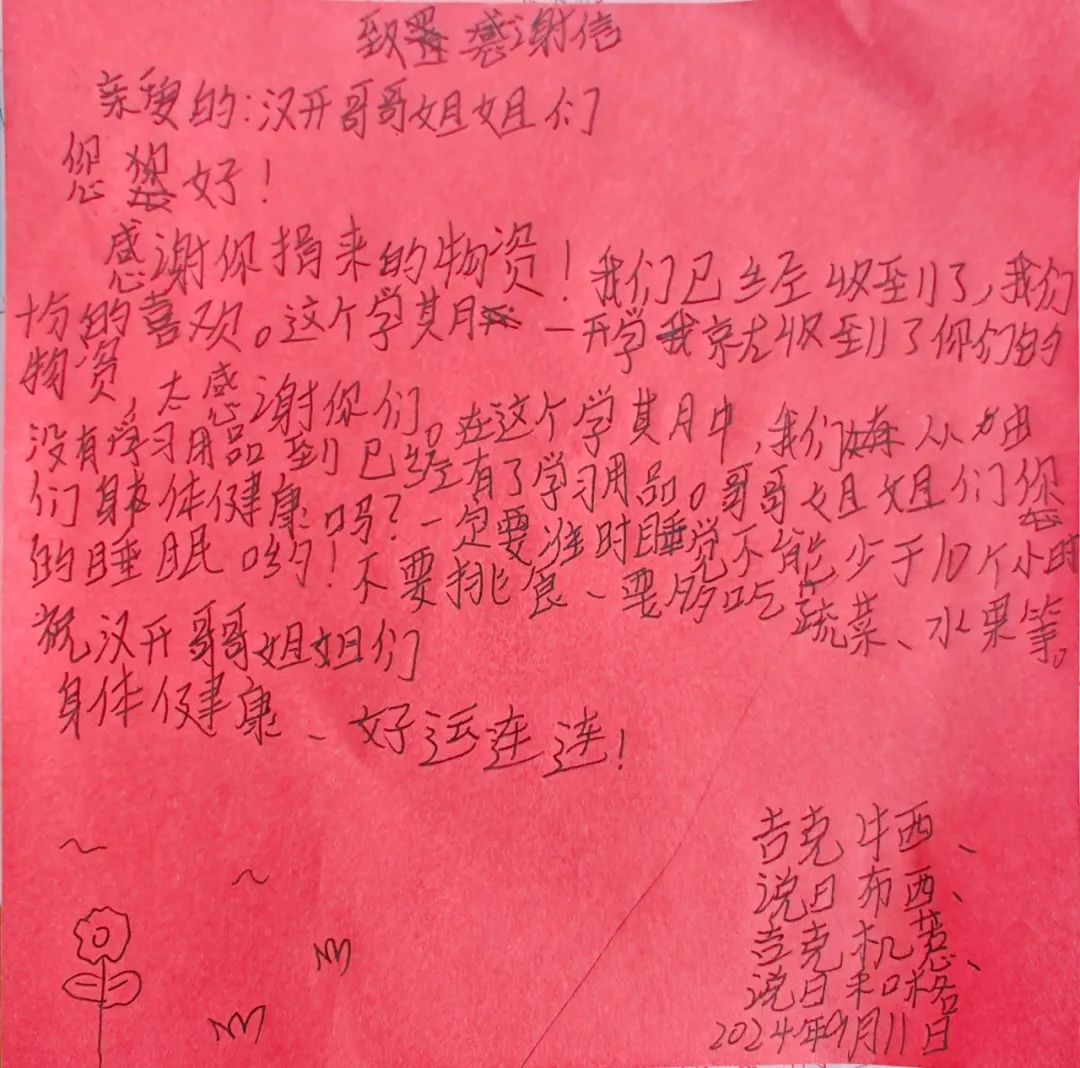 致感谢信
亲爱的:汉开哥哥姐姐们
您好!
感谢你捐来的物资!我们已经收到了,我们
十分的喜欢。这个学期一开学我就收到了你们的
物资,太感谢你们。在这个学期中,我们从
没有学习用品到已经有了学习用品。哥哥姐姐们您
们身体健康吗?一定要准时睡觉不能少于10个小时
的睡眠哟!不要挑食、要多吃蔬菜、水果等。
祝汉开哥哥姐姐们
身体健康、好运连连!
吉克牛西、
说日布西、
吉克机惹、
说日和格
2024年9月11日